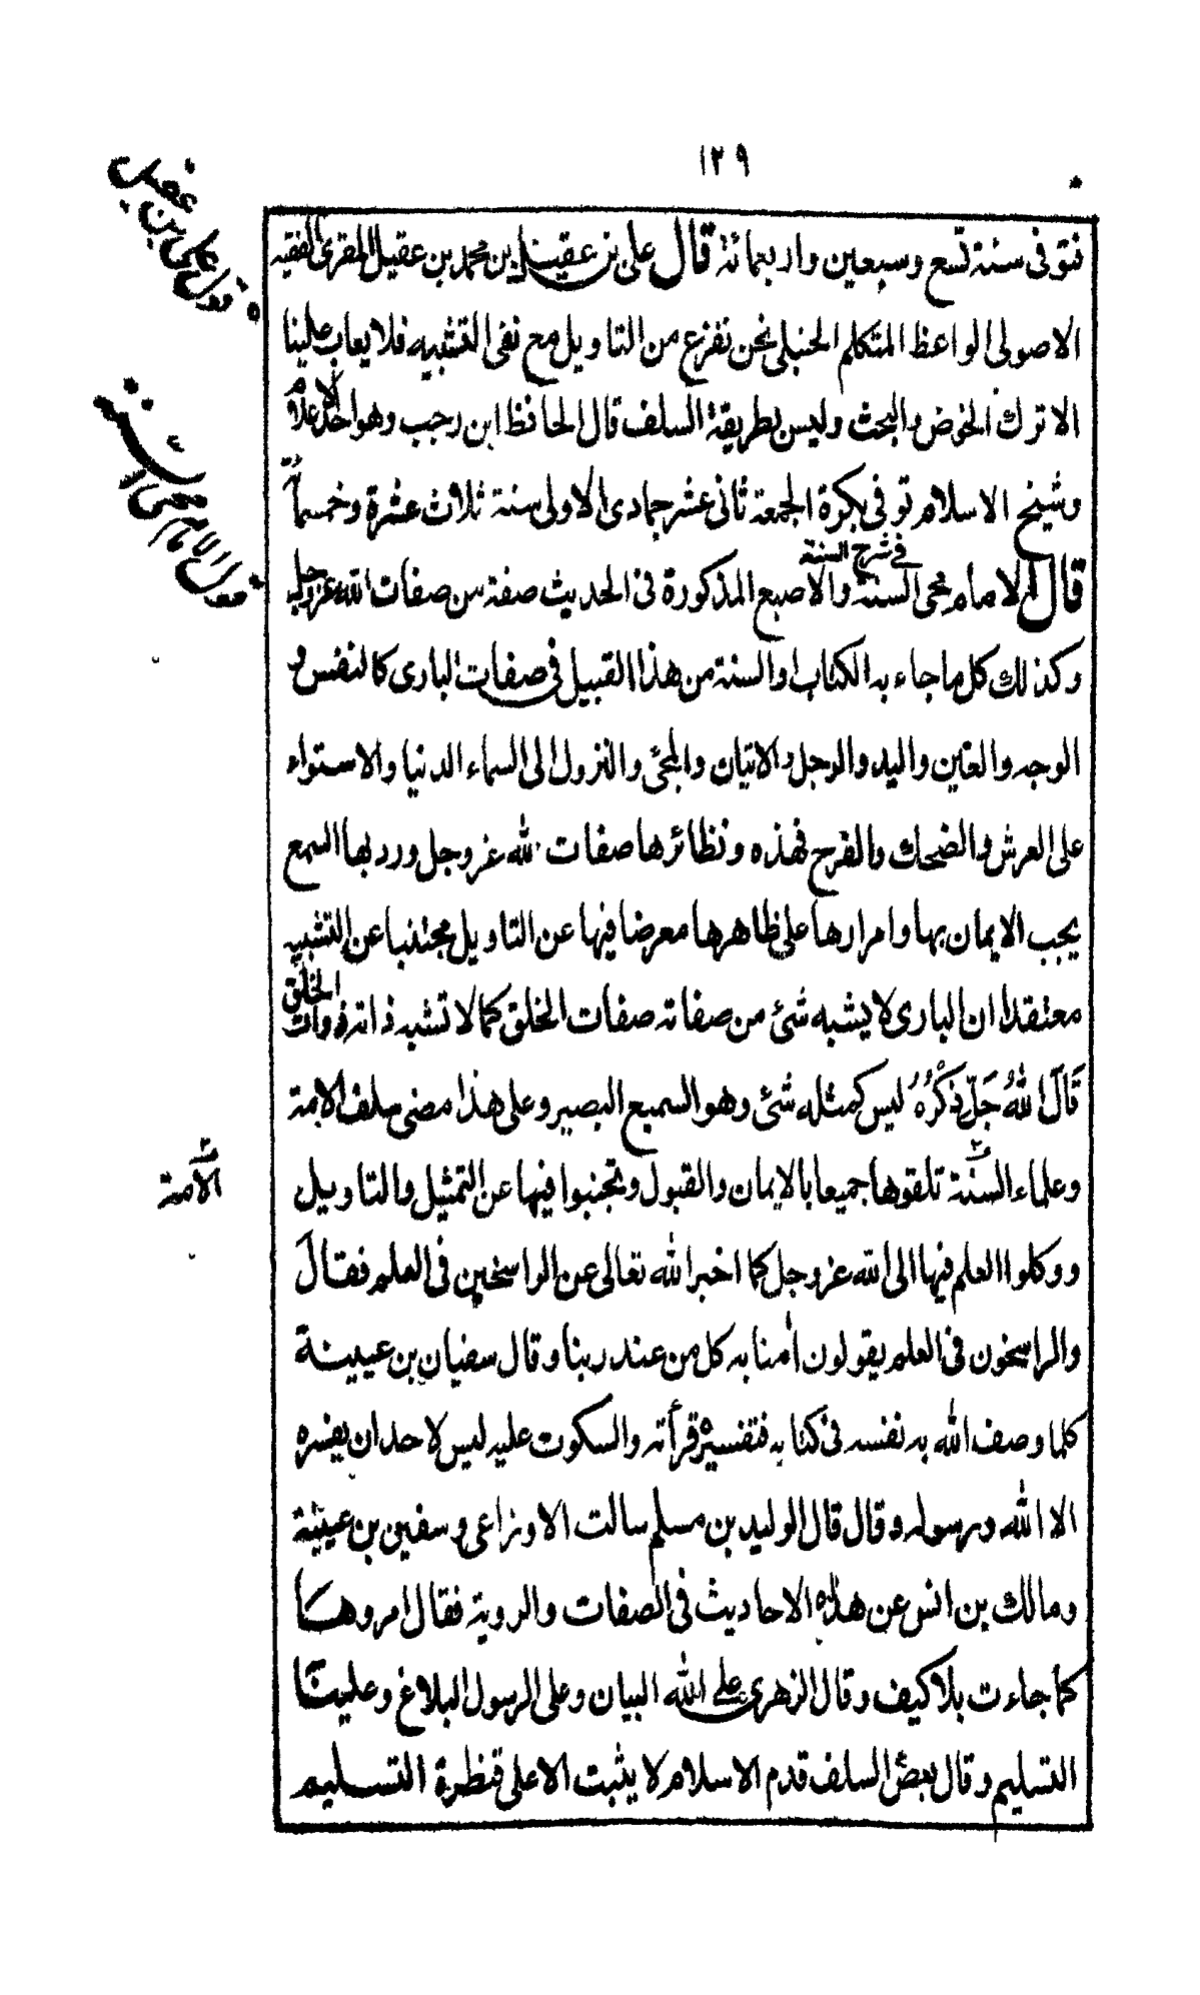 ١٢٩
فتوفى سنة تسع وسبعين واربعمائة قال على بن عقيل بن محمد بن عقيل المقرئ الفقيه
الاصولى الواعظ المتكلم الحنبلى نحن نفزع من التاويل مع نفى التشبيه فلا يعاب علينا
الا ترك الخوض والبحث وليس بطريقة السلف قال الحافظ ابن رجب وهو احد الاعلام
وشيخ الاسلام توفى بكرة الجمعة ثانى عشر جمادى الاولى سنة ثلاث عشرة وخمسمائة
فى شرح السنة
قال الامام محى السنة والاصبع المذكورة فى الحديث صفة من صفات الله عز وجل
وكذلك كل ما جاء به الكتاب والسنة من هذا القبيل فى صفات البارى كالنفس و
الوجه والعين واليد والرجل والاتيان والمجئ والنزول الى السماء الدنيا والاستواء
على العرش والضحك والفرح فهذه ونظائرها صفات لله عز وجل ورد بها السمع
يجب الايمان بها وامرارها على ظاهرها معرضا فيها عن التاويل مجتنبا عن التشبيه
معتقدا ان البارى لا يشبه شئ من صفاته صفات الخلق كما لا تشبه ذاته ذوات الخلق
قَالَ اللهُ جَلَّ ذِكْرُهُ ليس كمثله شئ وهو السميع البصير وعلى هذا مضى سلف الامة
وعلماء السنة تلقوها جميعا بالايمان والقبول وتجنبوا فيها عن التمثيل والتاويل
ووكلوا العلم فيها الى الله عز وجل كما اخبر الله تعالى عن الراسخين فى العلم فقال
والراسخون فى العلم يقولون اٰمنا به كل من عند ربنا وقال سفيان بن عيينة
كلما وصف الله به نفسه فى كتابه فتفسيره قرأته والسكوت عليه ليس لاحد ان يفسره
الا الله ورسوله وقال قال الوليد بن مسلم سالت الاوزاعى وسفين بن عيينة
ومالك بن انس عن هذه الاحاديث فى الصفات والروية فقال امروها
كما جاءت بلا كيف وقال الزهرى على الله البيان وعلى الرسول البلاغ وعلينا
التسليم وقال بعض السلف قدم الاسلام لا يثبت الا على قنظرة التسليم
قول على بن عقيل
قول الامام محى السنة
الأمة